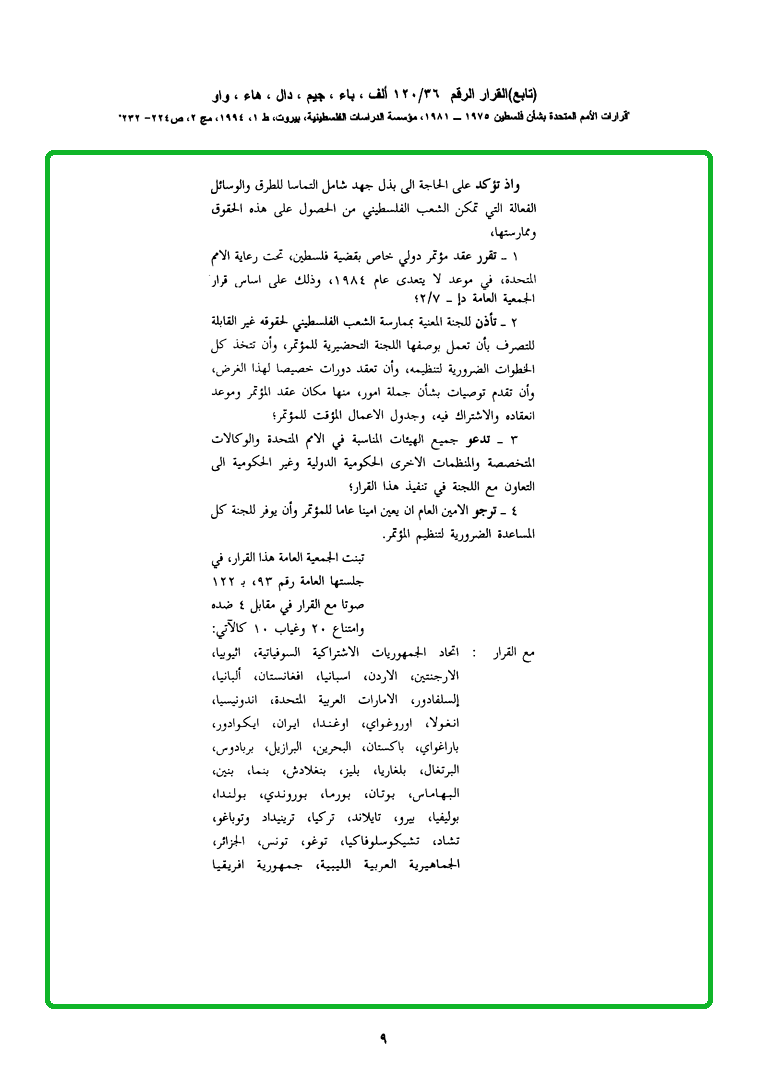 (تابع)القرار الرقم ١٢٠/٣٦ ألف ، باء ، جيم ، دال ، هاء ، واو
"قرارات الأمم المتحدة بشأن فلسطين ١٩٧٥ ــ ١٩٨١، مؤسسة الدراسات الفلسطينية، بيروت، ط ١، ١٩٩٤، مج ٢، ص٢٢٤– ٢٣٢"
واذ تؤكد على الحاجة الى بذل جهد شامل التماسا للطرق والوسائل
الفعالة التي تمكن الشعب الفلسطيني من الحصول على هذه الحقوق
وممارستها،
١ ـ تقرر عقد مؤتمر دولي خاص بقضية فلسطين، تحت رعاية الامم
المتحدة، في موعد لا يتعدى عام ١٩٨٤، وذلك على اساس قرار
الجمعية العامة دإ ـ ٢/٧؛
٢ ـ تأذن للجنة المعنية بممارسة الشعب الفلسطيني لحقوقه غير القابلة
للتصرف بأن تعمل بوصفها اللجنة التحضيرية للمؤتمر، وأن تتخذ كل
الخطوات الضرورية لتنظيمه، وأن تعقد دورات خصيصا لهذا الغرض،
وأن تقدم توصيات بشأن جملة امور، منها مكان عقد المؤتمر وموعد
انعقاده والاشتراك فيه، وجدول الاعمال المؤقت للمؤتمر؛
٣ ـ تدعو جميع الهيئات المناسبة في الامم المتحدة والوكالات
المتخصصة والمنظمات الاخرى الحكومية الدولية وغير الحكومية الى
التعاون مع اللجنة في تنفيذ هذا القرار؛
٤ ـ ترجو الامين العام ان يعين امينا عاما للمؤتمر وأن يوفر للجنة كل
المساعدة الضرورية لتنظيم المؤتمر.
تبنت الجمعية العامة هذا القرار، في
جلستها العامة رقم ٩٣، بـ ١٢٢
صوتا مع القرار في مقابل ٤ ضده
وامتناع ٢٠ وغياب ١٠ كالآتي:
مع القرار : اتحاد الجمهوريات الاشتراكية السوفياتية، اثيوبيا،
الارجنتين، الاردن، اسبانيا، افغانستان، ألبانيا،
إلسلفادور، الامارات العربية المتحدة، اندونيسيا،
انغولا، اوروغواي، اوغندا، ايران، ايكوادور،
باراغواي، باكستان، البحرين، البرازيل، بربادوس،
البرتغال، بلغاريا، بليز، بنغلادش، بنما، بنين،
البهاماس، بوتان، بورما، بوروندي، بولندا،
بوليفيا، بيرو، تايلاند، تركيا، ترينيداد وتوباغو،
تشاد، تشيكوسلوفاكيا، توغو، تونس، الجزائر،
الجماهيرية العربية الليبية، جمهورية افريقيا
٩